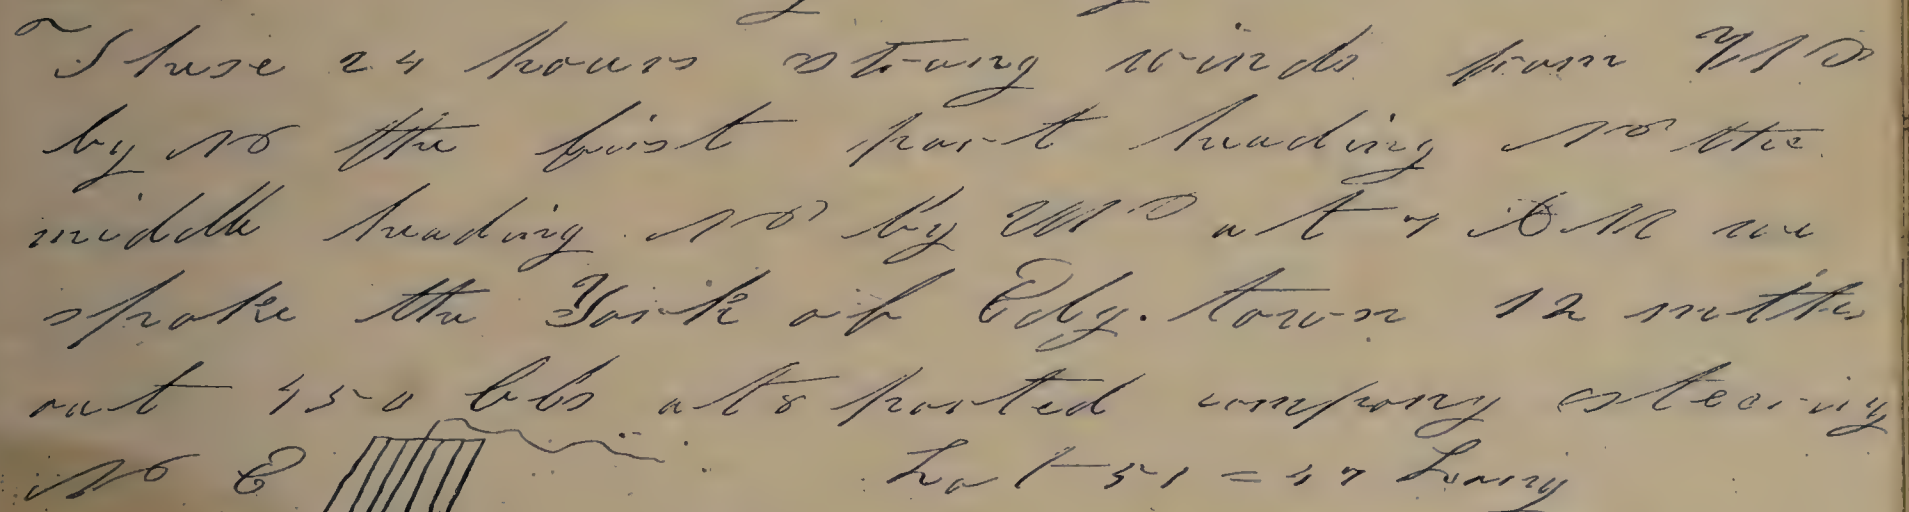 These 24 hours strong winds from
by N the first part heading N the
middle heading N by W at 7 A M we
spoke the York of Edg.town 12 mths
out 450 bbs at 8 parted company steering
N E Lat 51=47 Long